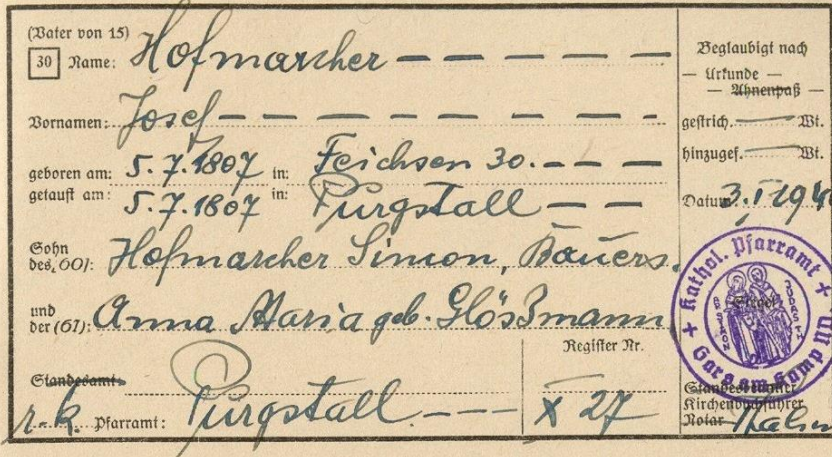 (Vater von 15)
30 Name: Hofmarcher — — — — —
Vornamen: Josef — — — — — — — — -
geboren am: 5.7.1807 in: Feichsen 30. — — —
getauft am: 5.7.1807 in: Purgstall — —
Sohn des (60): Hofmarcher Simon, Bauers.
und der (61): Anna Maria geb. Glösßmann
Standesamt
r.-k. Pfarramt: Purgstall. — — —
Register Nr.
X 27
Beglaubigt nach
— Urkunde —
— Ahnenpaß —
gestrich. — Wt.
hinzugef. — Wt.
Datum: 3.I 194
+ Kathol. Pfarramt +
Gars am Kamp ND.
Siegel
Standesbeamter
Kirchenbuchführer
Notar